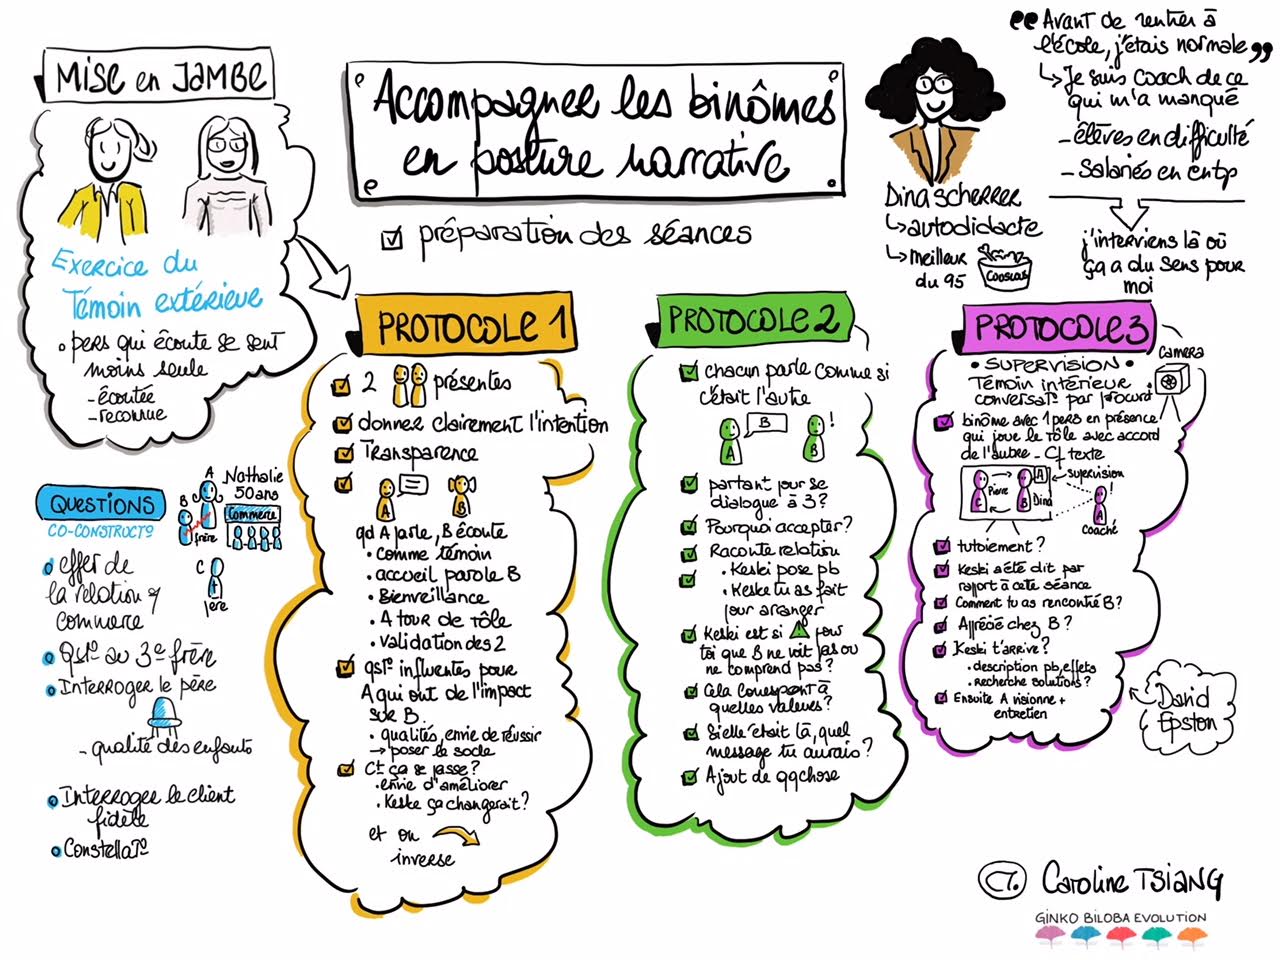 MISE en JAMBE
Exercice du
Témoin extérieur
pers qui écoute se sent
moins seule
- écoutée
- reconnue
Accompagner les binômes
en posture narrative
préparation des séances
Dina SCHERRER
↳ autodidacte
↳ meilleur
du 95
COUSCOUS
"Avant de rentrer à
l'école, j'étais normale"
↳ Je suis coach de ce
qui m'a manqué
- élèves en difficulté
- Salariés en entp
j'interviens là où
ça a du sens pour
moi
QUESTIONS
CO-CONSTRUCT°
A
Nathalie
50 ans
B
frère
Commerce
C
père
effet de
la relation
commerce
Qst° au 3e frère
Interroger le père
- qualité des enfants
Interroger le client
fidèle
Constellat°
PROTOCOLE 1
2 présentes
donner clairement l'intention
Transparence
A B
qd A parle, B écoute
• comme témoin
• accueil parole B
• Bienveillance
• A tour de rôle
• Validation des 2
qst° influentes pour
A qui ont de l'impact
sur B
• qualités, envie de réussir
→ poser le socle
Ct ça se passe?
• envie d'améliorer
• Keske ça changerait?
et on
inverse
PROTOCOLE 2
chacun parle comme si
c'était l'autre
A B B !
partant pour se
dialogue à 3?
Pourquoi accepter?
Raconte relation
• Keski pose pb
• Keske tu as fait
pour arranger
Keski est si ! pour
toi que B ne voit pas ou
ne comprend pas?
Cela correspond à
quelles valeurs?
Si elle était là, quel
message tu aurais?
Ajout de qqchose
PROTOCOLE 3
• SUPERVISION •
Témoin intérieur
conversat° par procurat°
Camera
binôme avec 1 pers en présence
qui joue le rôle avec accord
de l'autre - Cf texte
C Pierre B A Dina
supervision
! A
coaché
tutoiement?
Keski a été dit par
rapport à cette séance
Comment tu as rencontré B?
Apprécié chez B?
Keski t'arrive?
• description pb, effets
• recherche solutions?
Ensuite A visionne +
entretien
David
Epston
CT. Caroline TSIANG
GINKO BILOBA EVOLUTION